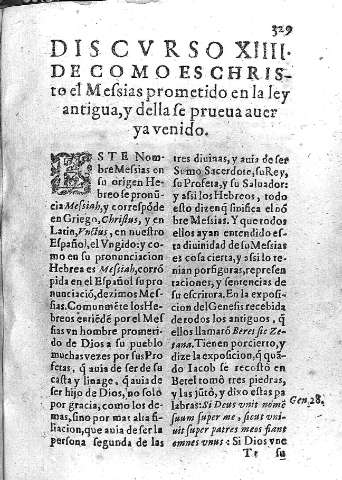 329
DISCVRSO XIIII.
DE COMO ES CHRIS-
to el Messias prometido en la ley
antigua, y della se prueua auer
ya venido.
ESTE Nom-
bre Messias en
su origen He-
breo se pronũ-
cia Messiah, y correspõde
en Griego, Christus, y en
Latin, Vnctus, en nuestro
Español, el Vngido: y co-
mo en su pronunciacion
Hebrea es Messiah, corrõ
pida en el Español su pro
nunciaciõ, dezimos Mes-
sias. Comunmẽte los He-
breos entiẽdẽ por el Mes
sias vn hombre prometi-
do de Dios a su pueblo
muchas vezes por sus Pro
fetas, q̃ auia de ser de su
casta y linage, q̃ auia de
ser hijo de Dios, no solo
por gracia, como los de-
mas, sino por mas alta fi-
liacion, que auia de ser la
persona segunda de las
tres diuinas, y auia de ser
Sumo Sacerdote, su Rey,
su Profeta, y su Saluador:
y assi los Hebreos, todo
esto dizen q̃ sinifica el nõ
bre Messias. Y que todos
ellos ayan entendido es-
ta diuinidad de su Messias
es cosa cierta, y assi lo te-
nian por figuras, represen
taciones, y sentencias de
su escritura. En la exposi-
cion del Genesis recebida
de todos los antiguos, q̃
ellos llamarõ Beresit Ze-
tana. Tienen por cierto, y
dize la exposicion, q̃ quã-
do Iacob se recostò en
Betel tomò tres piedras,
y las jũtò, y dixo estas pa
labras: Si Deus vnit nomẽ
suum super me, sicut vni-
uit super patres meos fiant
omnes vnus: Si Dios vne
Gen. 28.
su